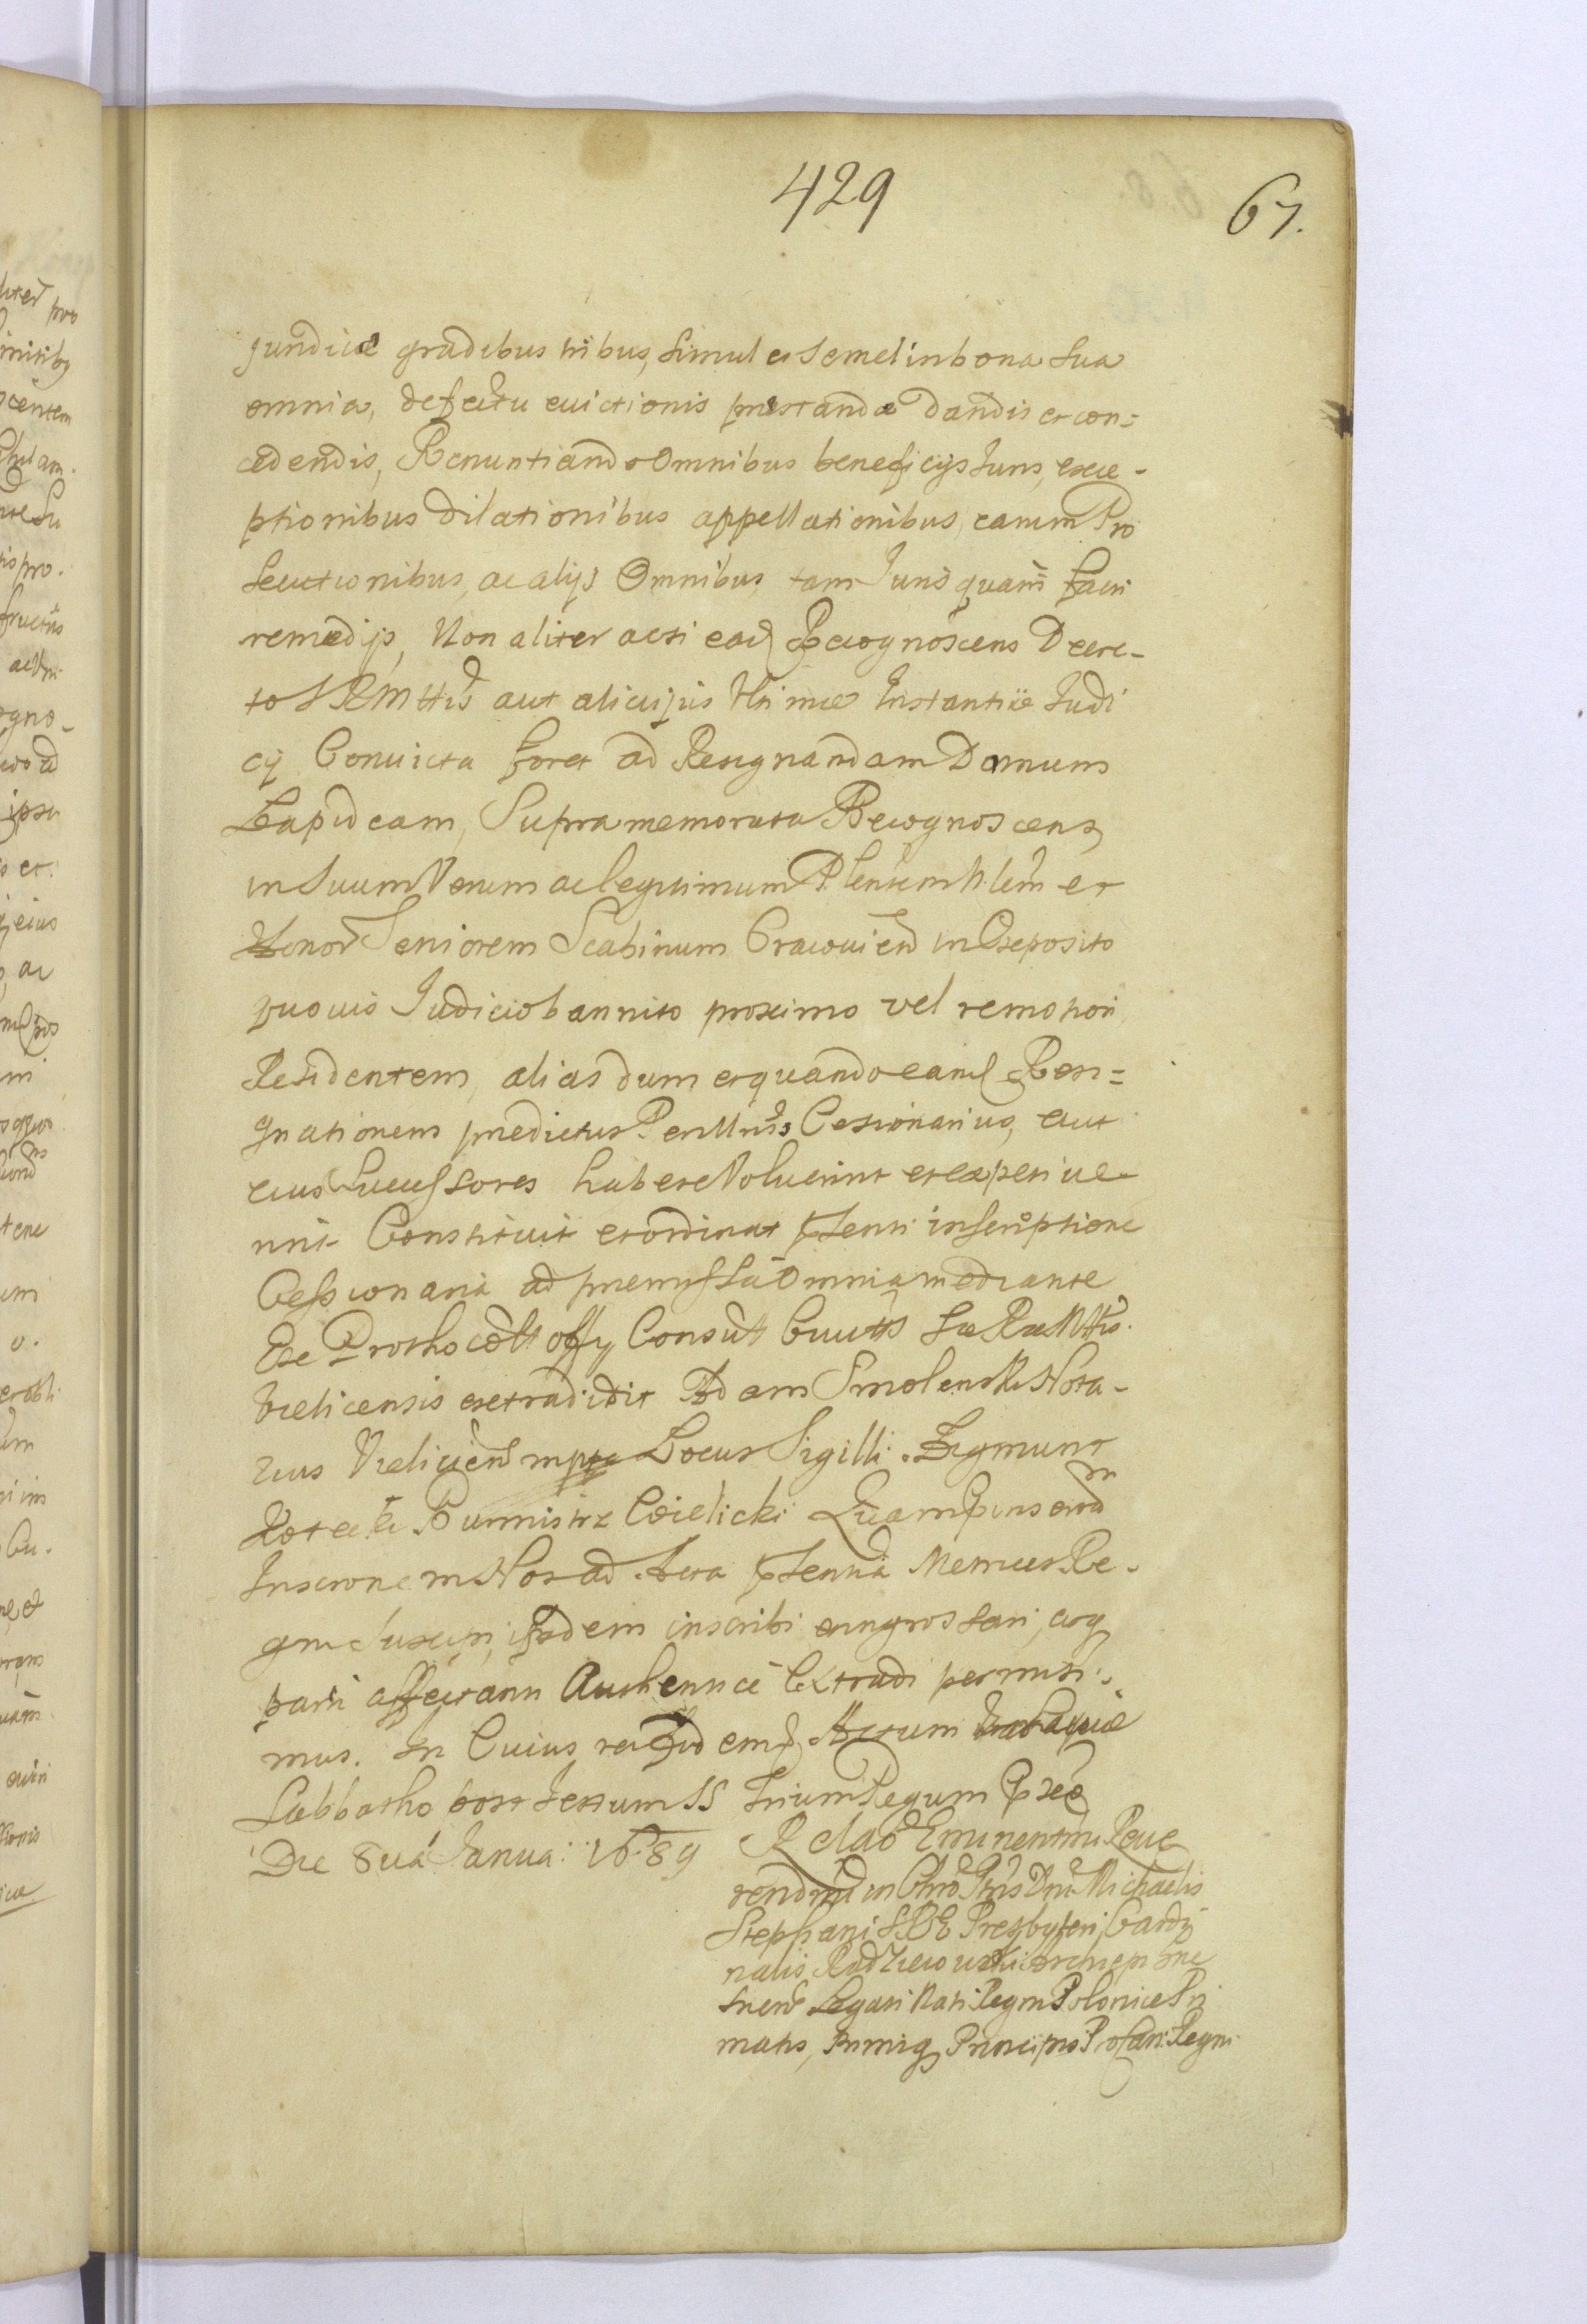 429
67.
juridicae gradibus tribus, simul et semel in bona sua
omnia, defectu evictionis praestandae dandis et con=
cedendis, Renuntiando Omnibus beneficijs Juris, exce-
ptionibus dilationibus appellationibus, earum Pro
secutionibus, ac alijs Omnibus tam Juris quam facti
remedijs, Non aliter ac si ead Recognoscens Decre-
to SRMttis aut alicujus Ultimae Instantiae Judi
cij Convicta foret ad Resignandam Domum
Lapideam, Supramemorata Recognoscens
in Suum Verum ac legitimum Plentem et
Honor Seniorem Scabinum Cracovien in Exposito
quovis Judicio bannito proximo vel remotiori
Residentem, alias dum et quando eand Resi=
gnationem praedictus Cessionarius, aut
eius Successores habere Voluerint et expetive
rint Constituit et ordinat pnti inscriptione
Cessionaria ad praemissa Omnia mediante
Ex Prothocoll offy Consul Civittis SaeRaeMttis
Vielicensis extradidit Adam Smolenski Nota-
rius Vielicien mppa Locus Sigilli. Zygmunt
Burmistrz Wielicki Quam
Inscronem Nos ad Acta pntia
suscepi, ijsdem inscribi et ingrossari, atq
parti affectanti Authentice Extradi permisi-
mus. In Cuius rei fidem Actum
Sabbatho post festum SS Trium Regum pxo
Die 8va Janua: 1689
Relao Eminentmi Reve
rendmi in Chro Ptris Dni Michaelis
Stephani SRE Presbyteri Cardi
nalis Radziewoski Archiepi Gne
snen Legati Nati Regni Poloniae Pri
matis, Primiq Principis Regni